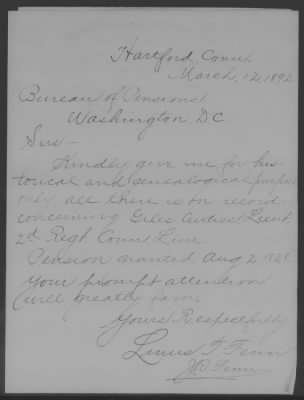 Hartford, Conn.
March, 12, 1892
Bureau of Pensions
Washington, DC
Sirs:-
Kindly give me, for his-
torical and genealogical purposes
only, all there is on record
concerning Giles Curtiss, Lieut
2d Regt Conn Line.
Pension granted Aug 2 1828.
Your prompt attention
will greatly favor.
Yours Respectfully
Linus T Fenn
Fenn